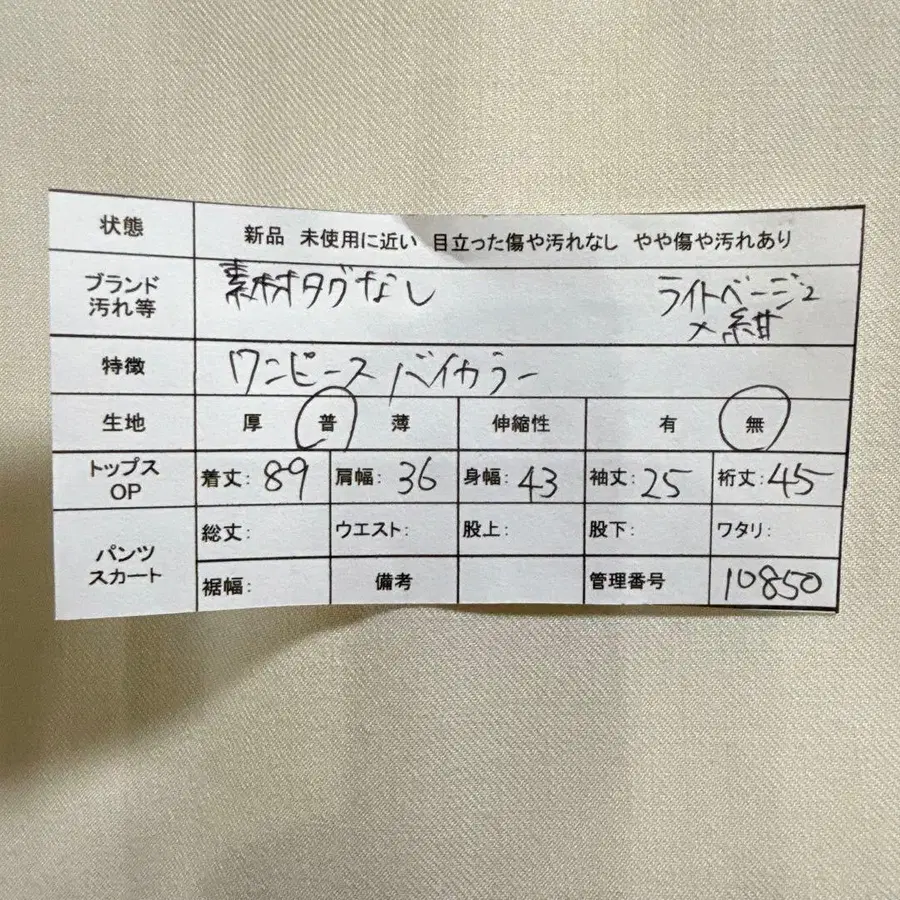 状態 新品 未使用に近い 目立った傷や汚れなし やや傷や汚れあり
ブランド 汚れ等 素材タグなし ライトベージュ
×紺
特徴 ワンピース バイカラー
生地 厚 普 薄 伸縮性 有 無
トップス OP 着丈: 89 肩幅: 36 身幅: 43 袖丈: 25 裄丈: 45
パンツ スカート 総丈: ウエスト: 股上: 股下: ワタリ:
裾幅: 備考 管理番号 10850